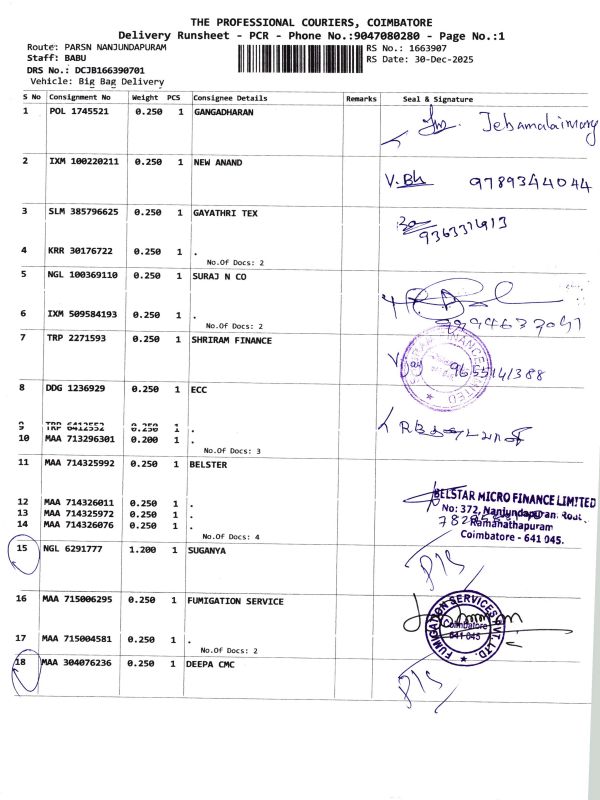 THE PROFESSIONAL COURIERS, COIMBATORE
Delivery Runsheet - PCR - Phone No.:9047080280 - Page No.:1
Route: PARSN NANJUNDAPURAM
RS No.: 1663907
Staff: BABU
RS Date: 30-Dec-2025
DRS No.: DCJB166390701
Vehicle: Big Bag Delivery
S No Consignment No Weight PCS Consignee Details Remarks Seal & Signature
1 POL 1745521 0.250 1 GANGADHARAN
Jebamalaimary
2 IXM 100220211 0.250 1 NEW ANAND
V.Bh 9789344044
3 SLM 385796625 0.250 1 GAYATHRI TEX
4 KRR 30176722 0.250 1 .
No.Of Docs: 2
5 NGL 100369110 0.250 1 SURAJ N CO
6 IXM 509584193 0.250 1 .
No.Of Docs: 2
7 TRP 2271593 0.250 1 SHRIRAM FINANCE
9655141388
8 DDG 1236929 0.250 1 ECC
9 TRP 6412552 0.250 1 .
10 MAA 713296301 0.200 1 .
No.Of Docs: 3
11 MAA 714325992 0.250 1 BELSTER
BELSTAR MICRO FINANCE LIMITED
No: 372, Nanjundapuran. Road,
Ramanathapuram
Coimbatore - 641 045.
12 MAA 714326011 0.250 1 .
13 MAA 714325972 0.250 1 .
14 MAA 714326076 0.250 1 .
No.Of Docs: 4
15 NGL 6291777 1.200 1 SUGANYA
P/S
16 MAA 715006295 0.250 1 FUMIGATION SERVICE
FUMIGATION SERVICES PVT. LTD.
Coimbatore
641 045
17 MAA 715004581 0.250 1 .
No.Of Docs: 2
18 MAA 304076236 0.250 1 DEEPA CMC
P/S